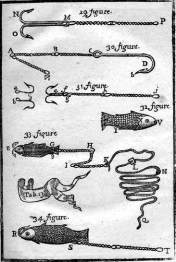 29 figure.
N
O M P
30 figure.
A B C
D
31 figure.
32 figure.
V
33 figure
G H
I K L
Tab. 13
N
34 figure.
R
S T